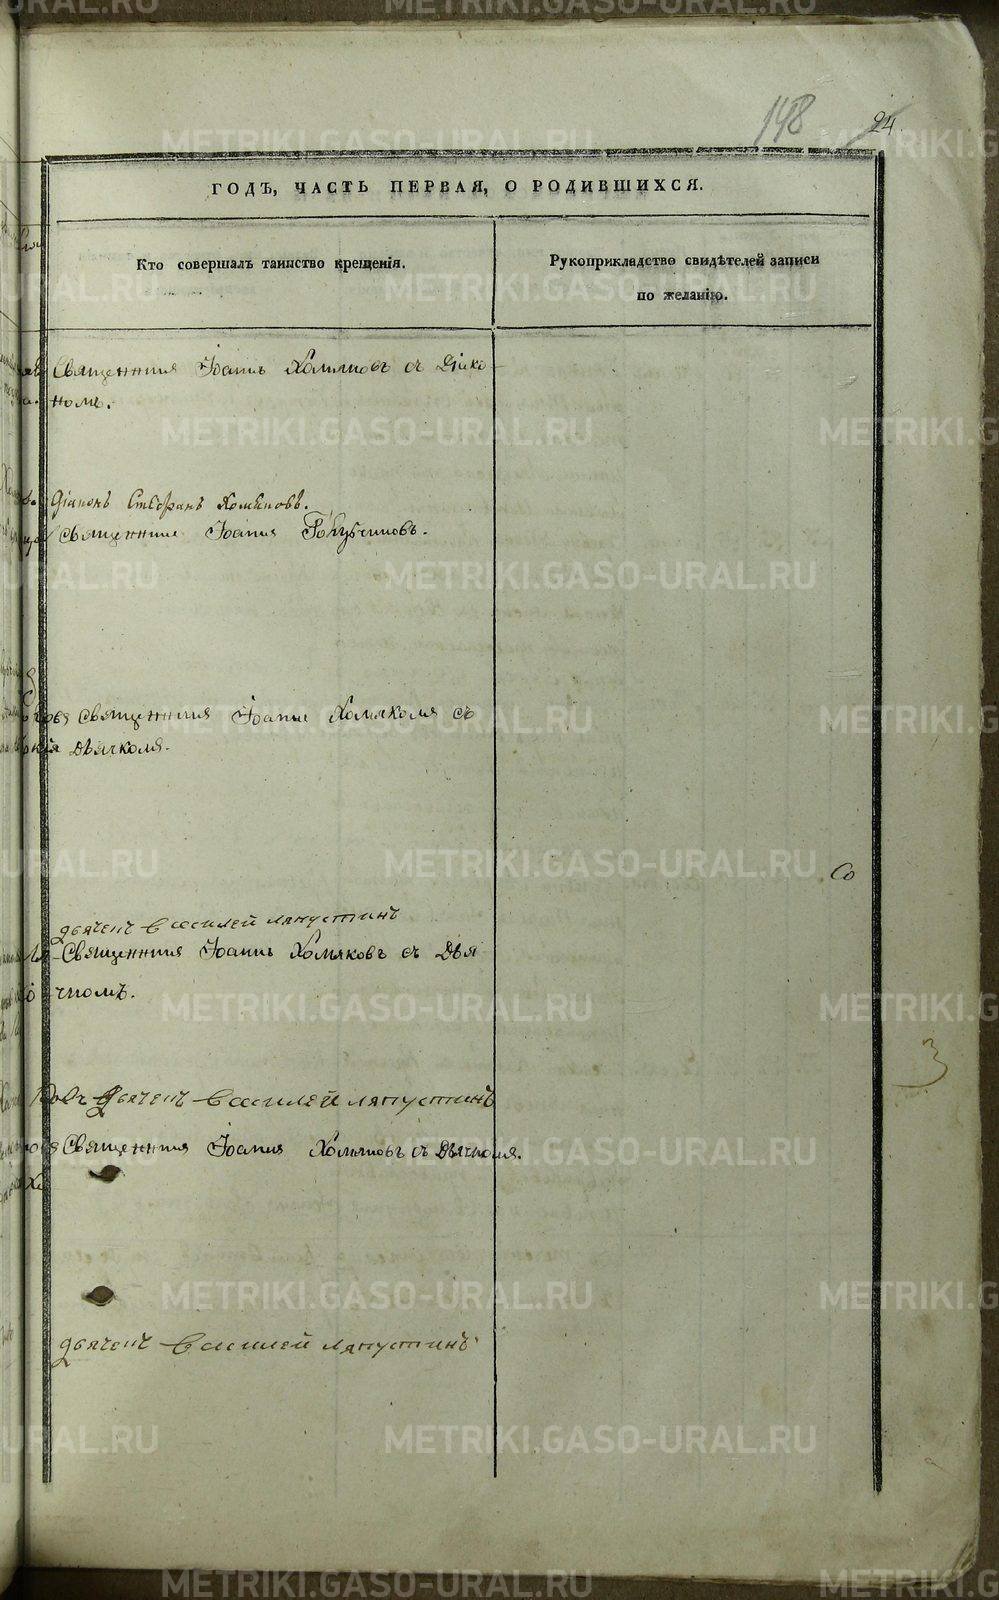 148
24.
ГОДЪ, ЧАСТЬ ПЕРВАЯ, О РОДИВШИХСЯ.
Кто совершалъ таинство крещенія.
Рукоприкладство свидѣтелей записи
по желанію.
Священникъ Іоаннъ Хомяковъ съ Діако
номъ.
Діаконъ Стефанъ Хомяковъ.
Священникъ Іоаннъ Голубчиковъ.
Священникъ Іоаннъ Хомяковъ съ
Дьячкомъ.
Со
дьячекъ Василей ляпустинъ
Священникъ Іоаннъ Хомяковъ съ Дья
чкомъ.
3
Дьячекъ Василей ляпустинъ
Священникъ Іоаннъ Хомяковъ съ Дьячкомъ.
дьячекъ Василей ляпустинъ
METRIKI.GASO-URAL.RU